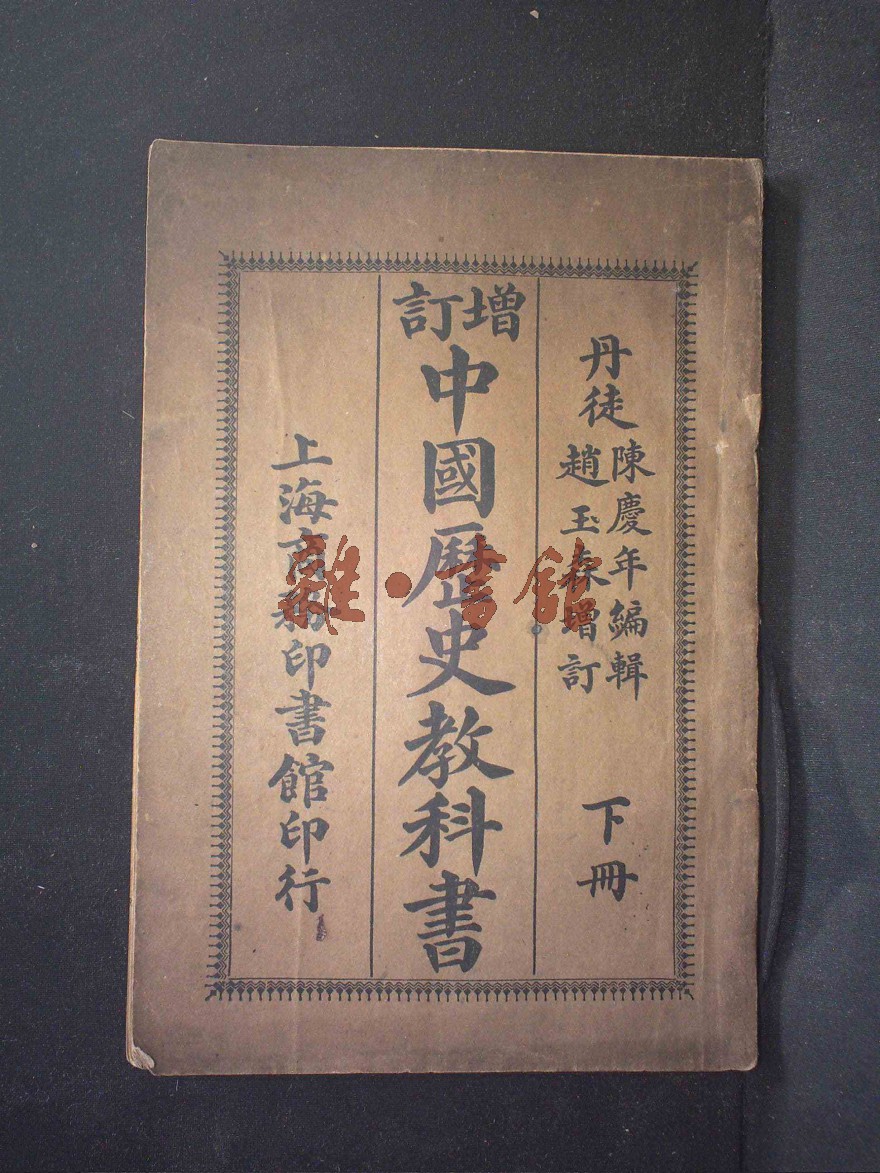 丹徒
陳慶年編輯
趙玉森增訂
下冊
增訂
中國歷史教科書
上海商務印書館印行
雜·書館